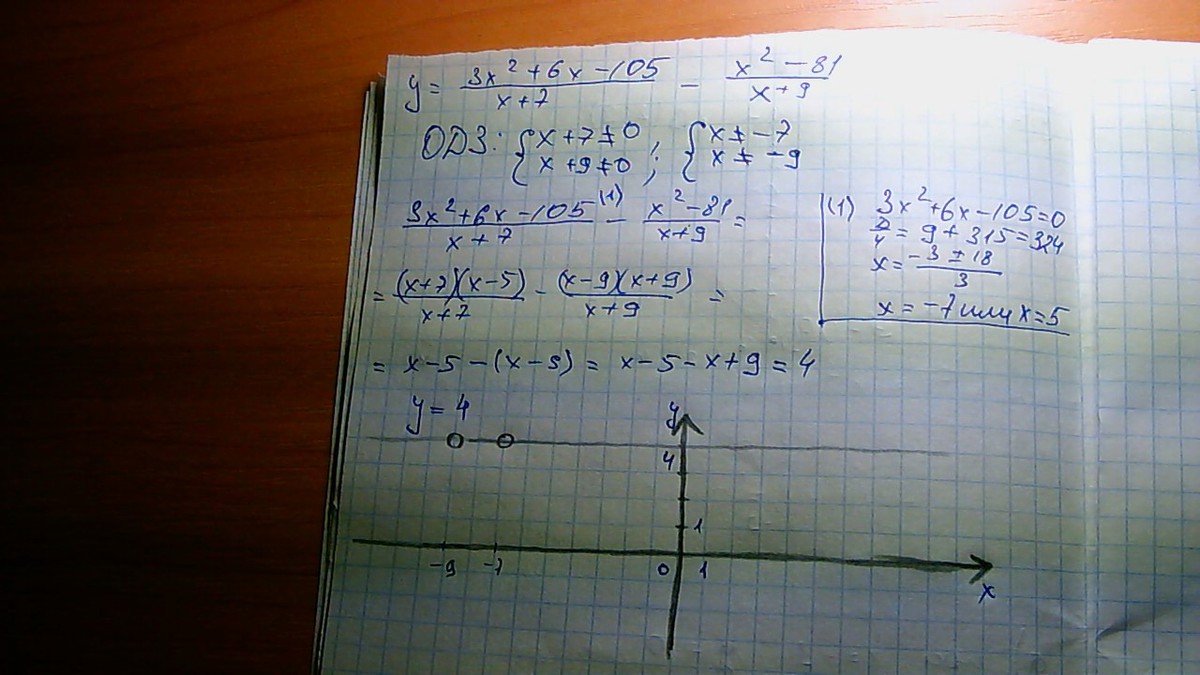 y = (3x² + 6x − 105)/(x + 7) − (x² − 81)/(x + 9)
ОДЗ: { x + 7 ≠ 0 ; { x ≠ −7
{ x + 9 ≠ 0 { x ≠ −9
(3x² + 6x − 105)/(x + 7) ⁽¹⁾ − (x² − 81)/(x + 9) =
= (x+7)(x−5)/(x+7) − (x−9)(x+9)/(x+9) =
= x − 5 − (x − 9) = x − 5 − x + 9 = 4
(1) 3x² + 6x − 105 = 0
D/4 = 9 + 315 = 324
x = (−3 ± 18)/3
x = −7 или x = 5
y = 4
y
4
1
−9 −7 0 1
x